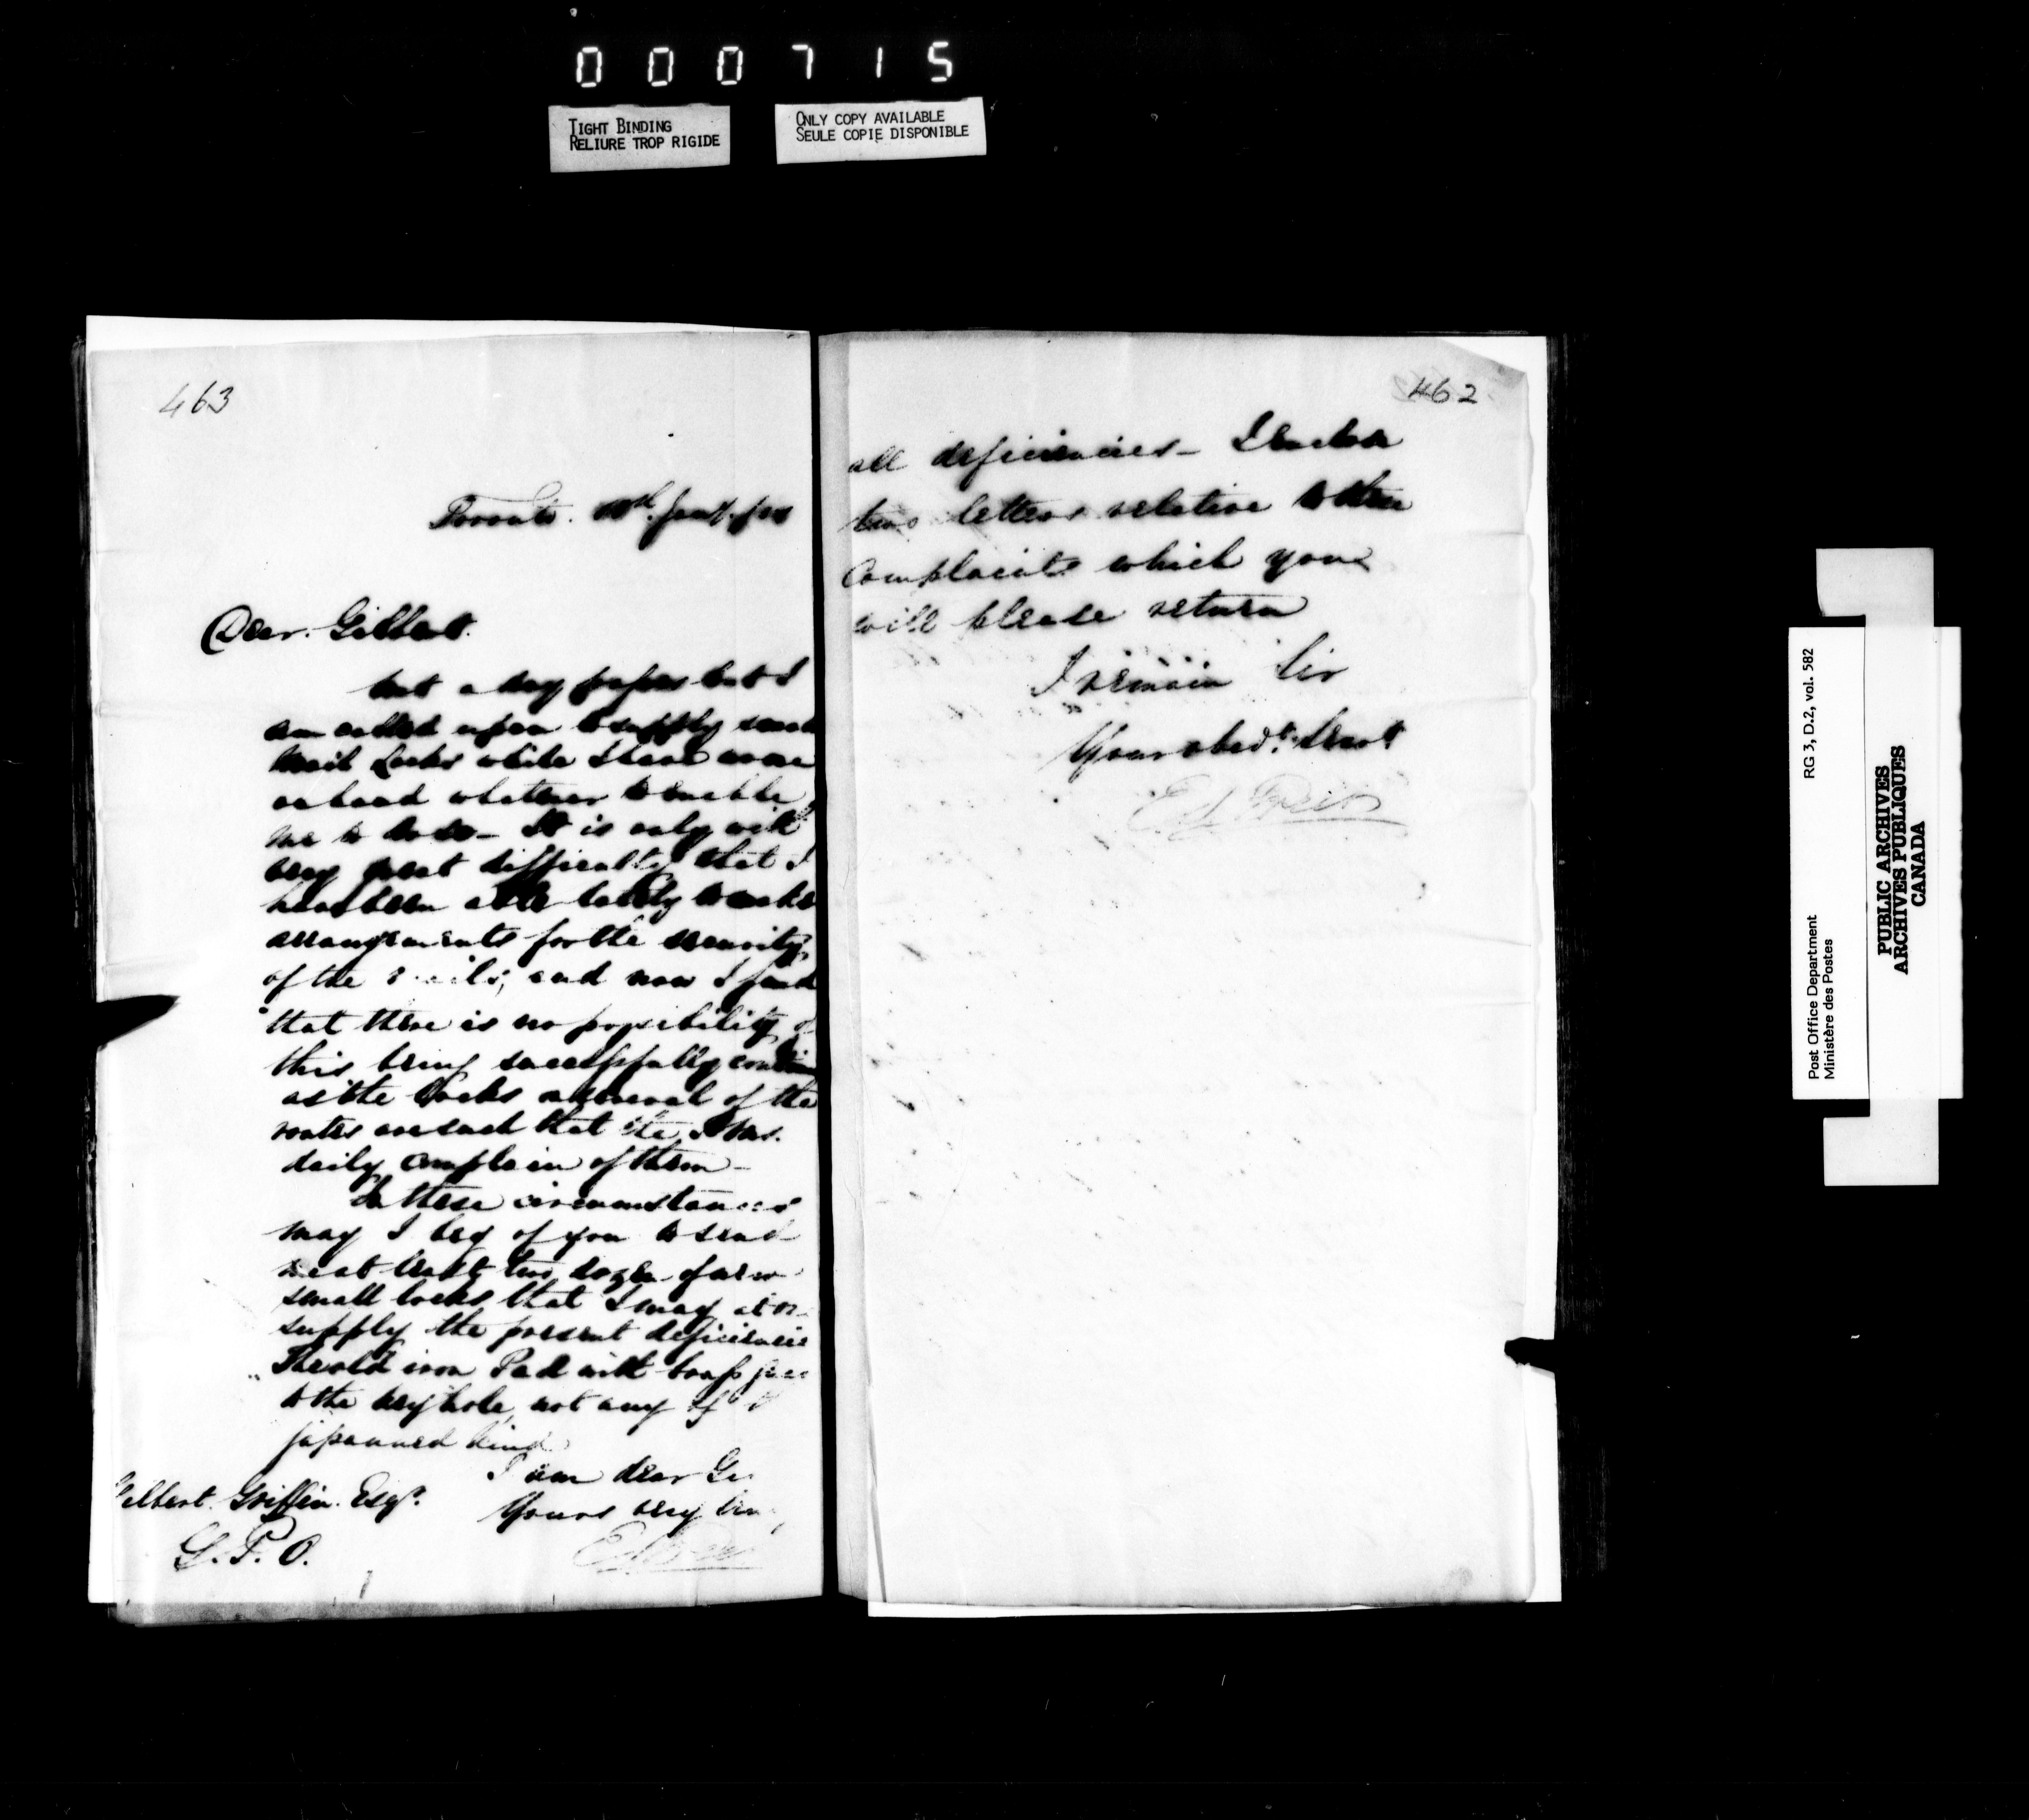 0 0 0 7 1 5
TIGHT BINDING
RELIURE TROP RIGIDE
ONLY COPY AVAILABLE
SEULE COPIE DISPONIBLE
463
Toronto. Jany.
Dear Gilbert.
Not a day passes but I
am called upon to supply small
Mail Locks while I have none
on hand whatever to enable
me to do so – It is only with
very great difficulty that I
have been able lately to make
arrangements for the security
of the mails; and now I find
that there is no possibility of
this being successfully
as the locks on several of the
routes are such that the
daily complain of them –
In these circumstances
may I beg of you to send
me at least two dozen of new
small locks that I may at on
supply the present deficiencies
The old iron Pad with brass
to the key hole, not any of
japanned kind
I am dear
Yours very
Gilbert Griffin Esqr.
G. P. O.
462
all deficiencies – I enclose
two letters relative to these
complaints which you
will please return
I remain Sir
Your obedt. Servt
RG 3, D.2, vol. 582
Post Office Department
Ministère des Postes
PUBLIC ARCHIVES
ARCHIVES PUBLIQUES
CANADA